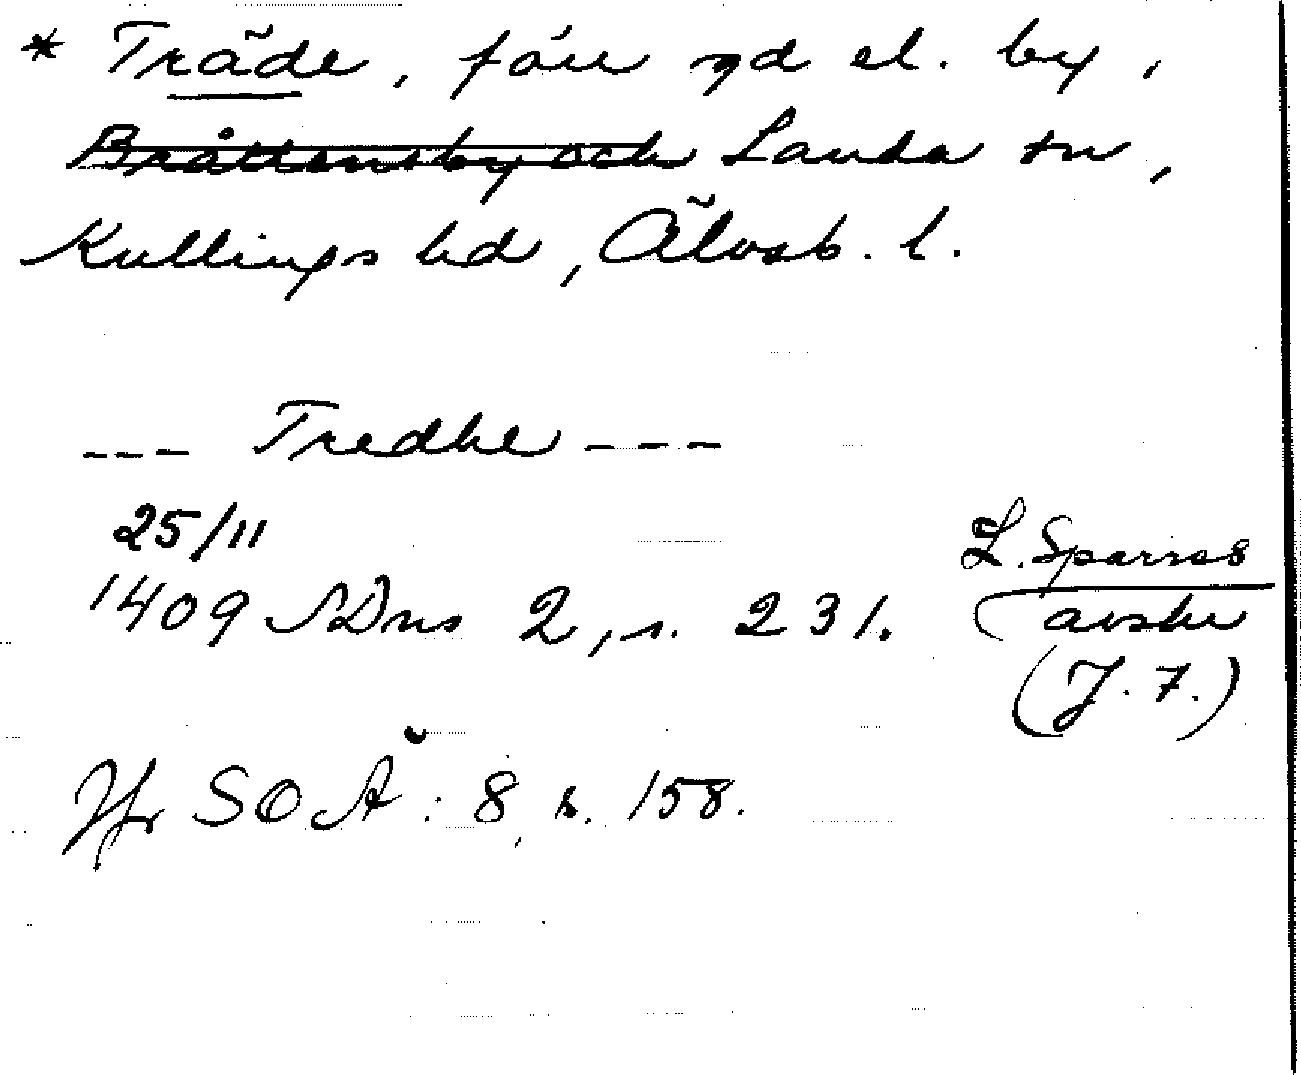 * Träde, förr gd el. by,
Bråttensby och Landa sn,
Kullings hd, Älvsb. l.
--- Tredhe ---
25/11
1409 SDns 2, s. 231.
L. Sparres
avskr
(J. 7.)
Jfr SOÄ: 8, s. 158.